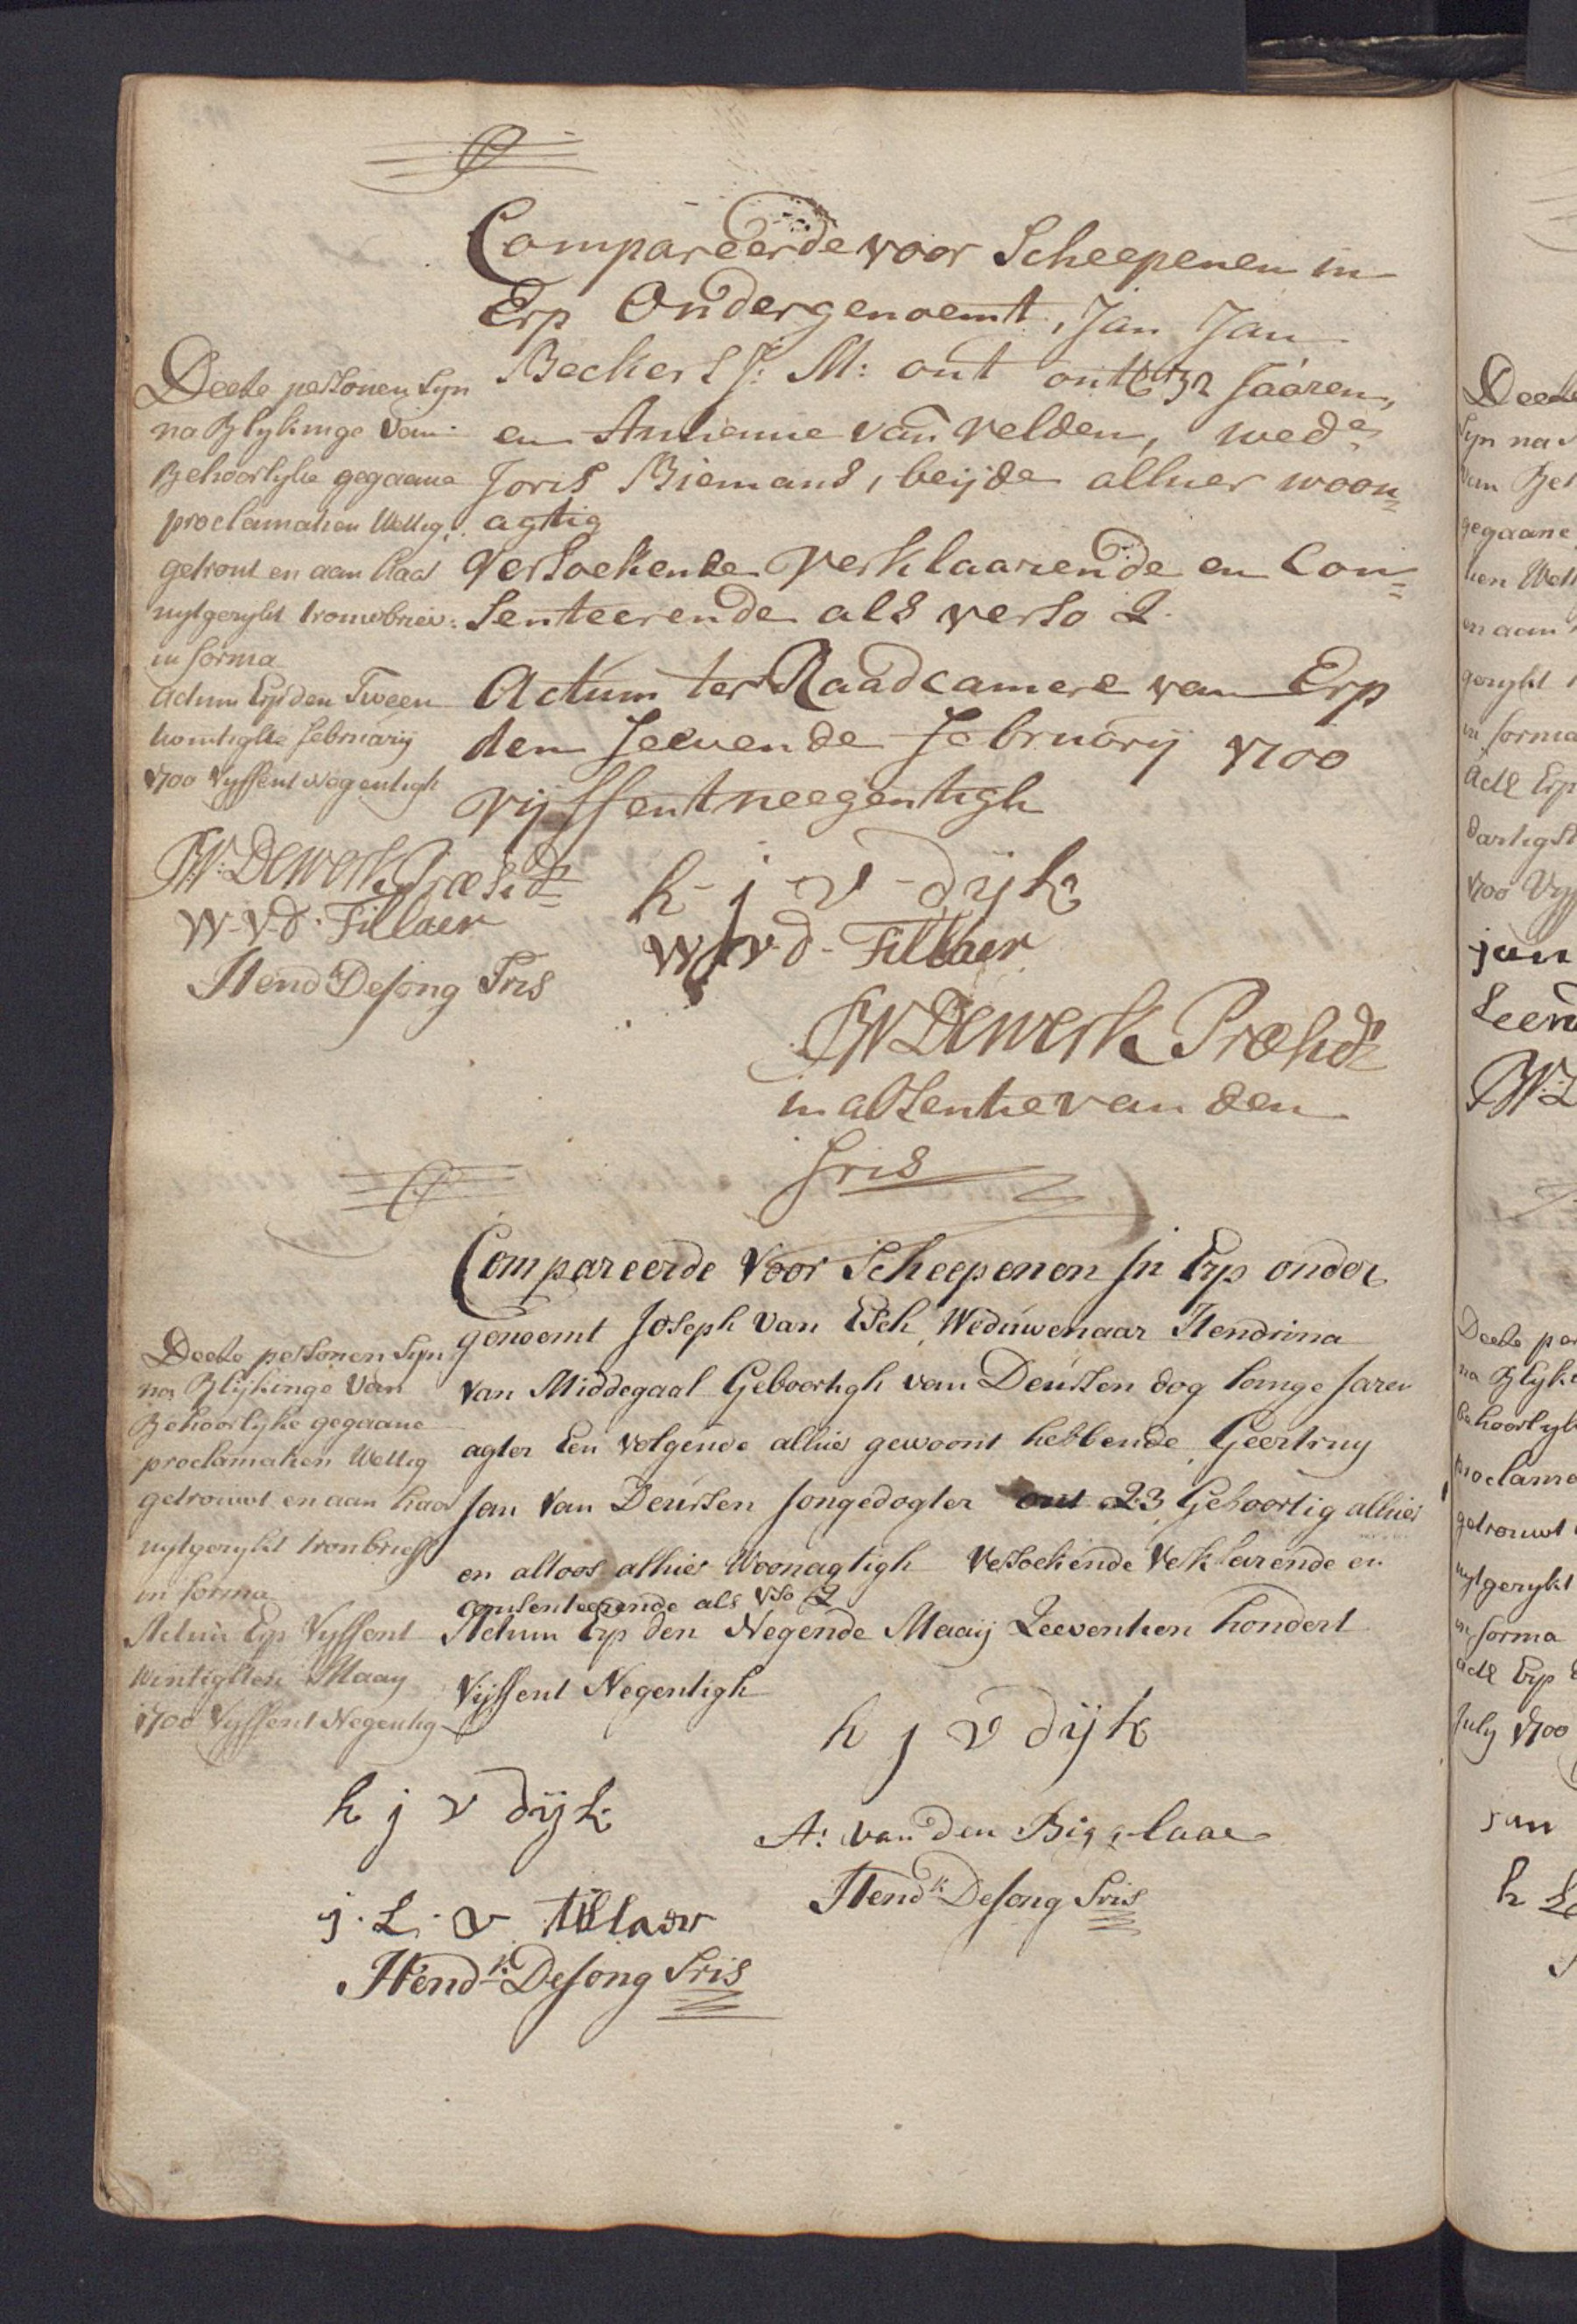 Compareerde voor Scheepenen in
Erp Ondergenoemt, Jan Jan
Beckers J: M: out out 32 Jaaren,
en Antienne van Velden, wede
Joris Biemans, beijde alhier woon=
agtig
Versoekende Verklaarende en Con=
senteerende als verso 2
Actum ter Raadcamere van Erp
den Seevende February 1700
vijffentneegentigh
h j v dijk
W v d Tillaer
JW Dewerk Præsidt
in absentie van den
Sris
Deese persoonen syn
na Blykinge van
Behoorlyke gegaane
proclamatien Wettig
getrout en aan haar
uytgerykt trouwbriev
in forma
Actum Erp den Tween
twintigste februarij
1700 Vyffentnegentigh
JW: Dewerk Præsidt
W. V. d. Tillaer
Hendk DeJong Sris
Compareerde voor Scheepenen in Erp onder
genoemt Joseph van Esch, Weduwenaar Hendrina
van Middegaal Geboortigh van Deursen dog lange Jaren
agter Een volgende alhier gewoont hebbende, Geertruy
Jan van Deursen Jongedogter out 23, Geboortig alhier
en altoos alhier Woonagtigh Versoekende Verklarende en
consenteerende als vso 2
Actum Erp den Negende Maaij Zeeventien hondert
Vijffent Negentigh
h j v dijk
A: van den Biggelaar
Hendk DeJong Sris
Deese persoonen syn
na Blijkinge van
Behoorlyke gegaane
proclamatien Wettig
getrouwt en aan haar
uytgerykt troubrieff
in forma
Actum Erp Vyffent
wintigsten Maay
1700 Vyffent Negentig
h j v dijk
j. L. v tillaar
Hendk: DeJong Sris
Deese
syn na
van Be
gegaane
tien Wett
en aan
gerykt
in forma
Acte Erp
dartigst
1700 Vyf
jan
Leen
Deese per
na Blyki
behoorlyk
proclama
getrouwt
uytgerykt
in forma
acte Erp
July 1700
jan